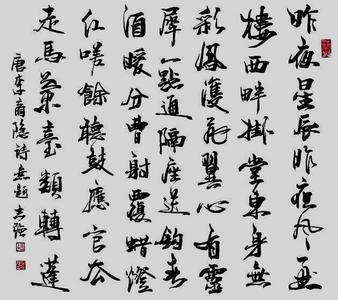 昨夜星辰昨夜风〻画
樓西畔掛堂東身無
彩鳳雙飛翼心有靈
犀一點通隔座送鈎春
酒暖分曹射覆蜡燈
红嗟餘聽鼓應官去
走馬蘭臺類轉蓬
唐李商隐詩无題志强